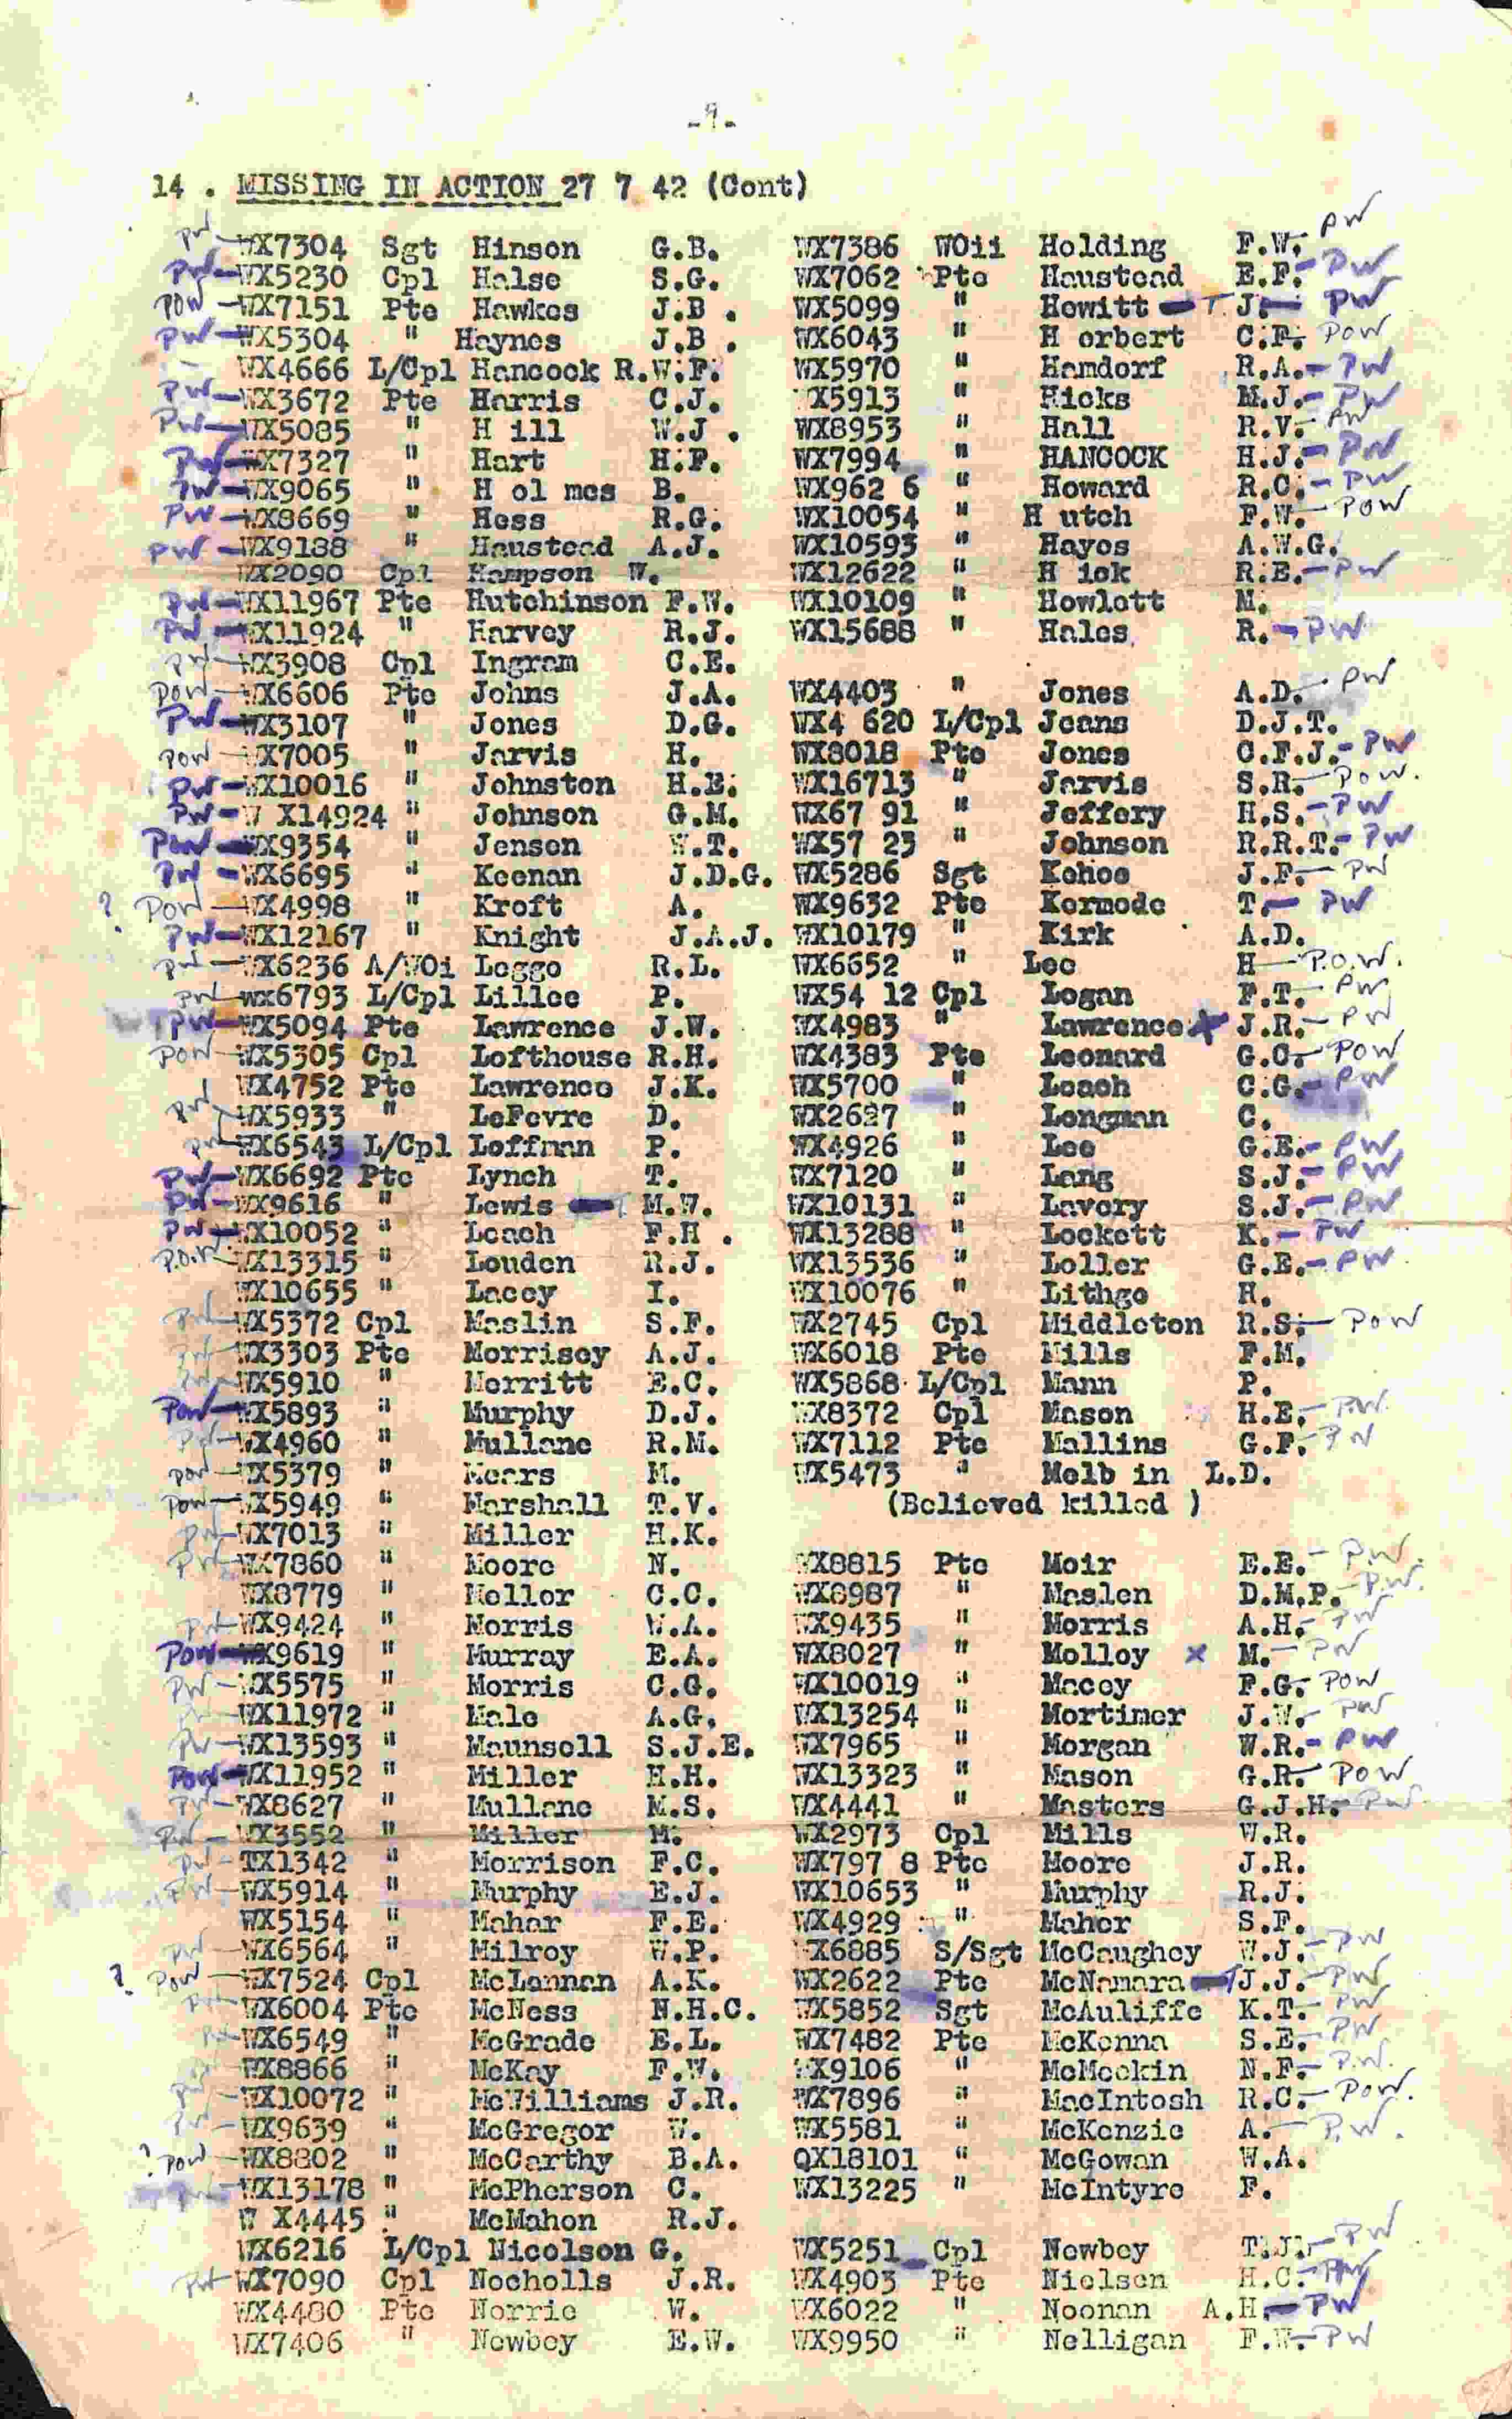 -9-
14 . MISSING IN ACTION 27 7 42 (Cont)
PW - WX7304 Sgt Hinson G.B. WX7386 WOii Holding F.W. - PW
PW - WX5230 Cpl Halse S.G. WX7062 Pte Haustead E.F. - PW
POW - WX7151 Pte Hawkes J.B . WX5099 " Hewitt J. - PW
PW - WX5304 " Haynes J.B . WX6043 " H erbert C.F. - POW
WX4666 L/Cpl Hancock R.W.F. WX5970 " Hamdorf R.A. - PW
PW - WX3672 Pte Harris C.J. X5913 " Hicks M.J. - PW
PW - WX5085 " H ill W.J . WX8953 " Hall R.V. - PW
PW - WX7327 " Hart H.F. WX7994 " HANCOCK H.J. - PW
PW - WX9065 " H ol mes B. WX962 6 " Howard R.C. - PW
PW - WX8669 " Hess R.G. WX10054 " H utch F.W. - POW
PW - WX9188 " Haustead A.J. WX10593 " Hayes A.W.G.
WX2090 Cpl Hampson W. WX12622 " H ick R.E. - PW
PW - WX11967 Pte Hutchinson F.W. WX10109 " Howlett M.
PW - WX11924 " Harvey R.J. WX15688 " Hales R. - PW
PW - WX3908 Cpl Ingram C.E.
POW - WX6606 Pte Johns J.A. WX4403 " Jones A.D. - PW
PW - WX3107 " Jones D.G. WX4 620 L/Cpl Jeans D.J.T.
POW - WX7005 " Jarvis H. WX8018 Pte Jones C.F.J. - PW
PW - WX10016 " Johnston H.E. WX16713 " Jarvis S.R. - POW.
PW - W X14924 " Johnson G.M. WX67 91 " Jeffery H.S. - PW
POW - WX9354 " Jensen W.T. WX57 23 " Johnson R.R.T. - PW
PW - WX6695 " Keenan J.D.G. WX5286 Sgt Kehoe J.F. - PW
? POW - WX4998 " Kroft A. WX9632 Pte Kermode T. - PW
PW - WX12167 " Knight J.A.J. WX10179 " Kirk A.D.
PW - WX6236 A/WOi Leggo R.L. WX6652 " Lee H - P.O.W.
PW - WX6793 L/Cpl Lillee P. WX54 12 Cpl Logan F.T. - PW
PW - WX5094 Pte Lawrence J.W. WX4983 " Lawrence J.R. - PW
POW - WX5305 Cpl Lofthouse R.H. WX4383 Pte Leonard G.C. - POW
WX4752 Pte Lawrence J.K. WX5700 " Leach C.G. - PW
PW - WX5933 " LeFevre D. WX2627 " Longman C.
PW - WX6543 L/Cpl Leffman P. WX4926 " Lee G.E. - PW
PW - WX6692 Pte Lynch T. WX7120 " Lang S.J. - PW
PW - WX9616 " Lewis M.W. WX10131 " Lavery S.J. - PW
PW - WX10052 " Leach F.H . WX13288 " Lockett K. - PW
P.O.W - WX13315 " Louden R.J. WX13536 " Loller G.E. - PW
WX10655 " Lacey I. WX10076 " Lithgo H.
PW - WX5372 Cpl Maslin S.F. WX2745 Cpl Middleton R.S. - POW
PW - WX3303 Pte Morrisey A.J. WX6018 Pte Mills F.M.
PW - WX5910 " Merritt E.C. WX5868 L/Cpl Mann P.
POW - WX5893 " Murphy D.J. WX8372 Cpl Mason H.E. - P.W.
PW - WX4960 " Mullane R.M. WX7112 Pte Mallins G.F. - PW
POW - WX5379 " Mears M. WX5473 " Melb in L.D.
POW - WX5949 " Marshall T.V. (Believed killed )
PW - WX7013 " Miller H.K.
PW - WX7860 " Moore N. WX8815 Pte Moir E.E. - P.W.
WX8779 " Mellor C.C. WX8987 " Maslen D.M.P. - P.W.
PW - WX9424 " Morris W.A. WX9435 " Morris A.H. - PW
POW - WX9619 " Murray E.A. WX8027 " Molloy x M. - PW
PW - WX5575 " Morris C.G. WX10019 " Macey F.G. - POW
PW - WX11972 " Male A.G. WX13254 " Mortimer J.W. - PW
PW - WX13593 " Maunsell S.J.E. WX7965 " Morgan W.R. - PW
POW - WX11952 " Miller H.H. WX13323 " Mason G.R. - POW
PW - WX8627 " Mullane M.S. WX4441 " Masters G.J.H. - PW
PW - WX3552 " Miller M. WX2973 Cpl Mills W.R.
PW - TX1342 " Morrison F.C. WX797 8 Pte Moore J.R.
PW - WX5914 " Murphy E.J. WX10653 " Murphy R.J.
WX5154 " Mahar F.E. WX4929 " Maher S.F.
PW - WX6564 " Milroy W.P. WX6885 S/Sgt McCaughey W.J. - PW
? POW - WX7524 Cpl McLennan A.K. WX2622 Pte McNamara J.J. - PW
PW - WX6004 Pte McNess N.H.C. WX5852 Sgt McAuliffe K.T. - PW
PW - WX6549 " McGrade E.L. WX7482 Pte McKenna S.E. - PW
WX8866 " McKay F.W. WX9106 " McMeekin N.F. - P.W.
PW - WX10072 " McWilliams J.R. WX7896 " MacIntosh R.C. - POW.
PW - WX9639 " McGregor W. WX5581 " McKenzie A. - P.W.
? POW - WX8802 " McCarthy B.A. QX18101 " McGowan W.A.
PW - WX13178 " McPherson C. WX13225 " McIntyre F.
W X4445 " McMahon R.J.
WX6216 L/Cpl Nicolson G. WX5251 Cpl Newbey T.J. - PW
PW - WX7090 Cpl Nocholls J.R. WX4903 Pte Nielsen H.C. - PW
WX4480 Pte Norrie W. WX6022 " Noonan A.H. - PW
WX7406 " Newbey E.W. WX9950 " Nelligan F.W. - PW